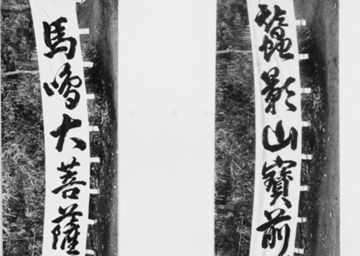 蠶影山寳前
馬鳴大菩薩